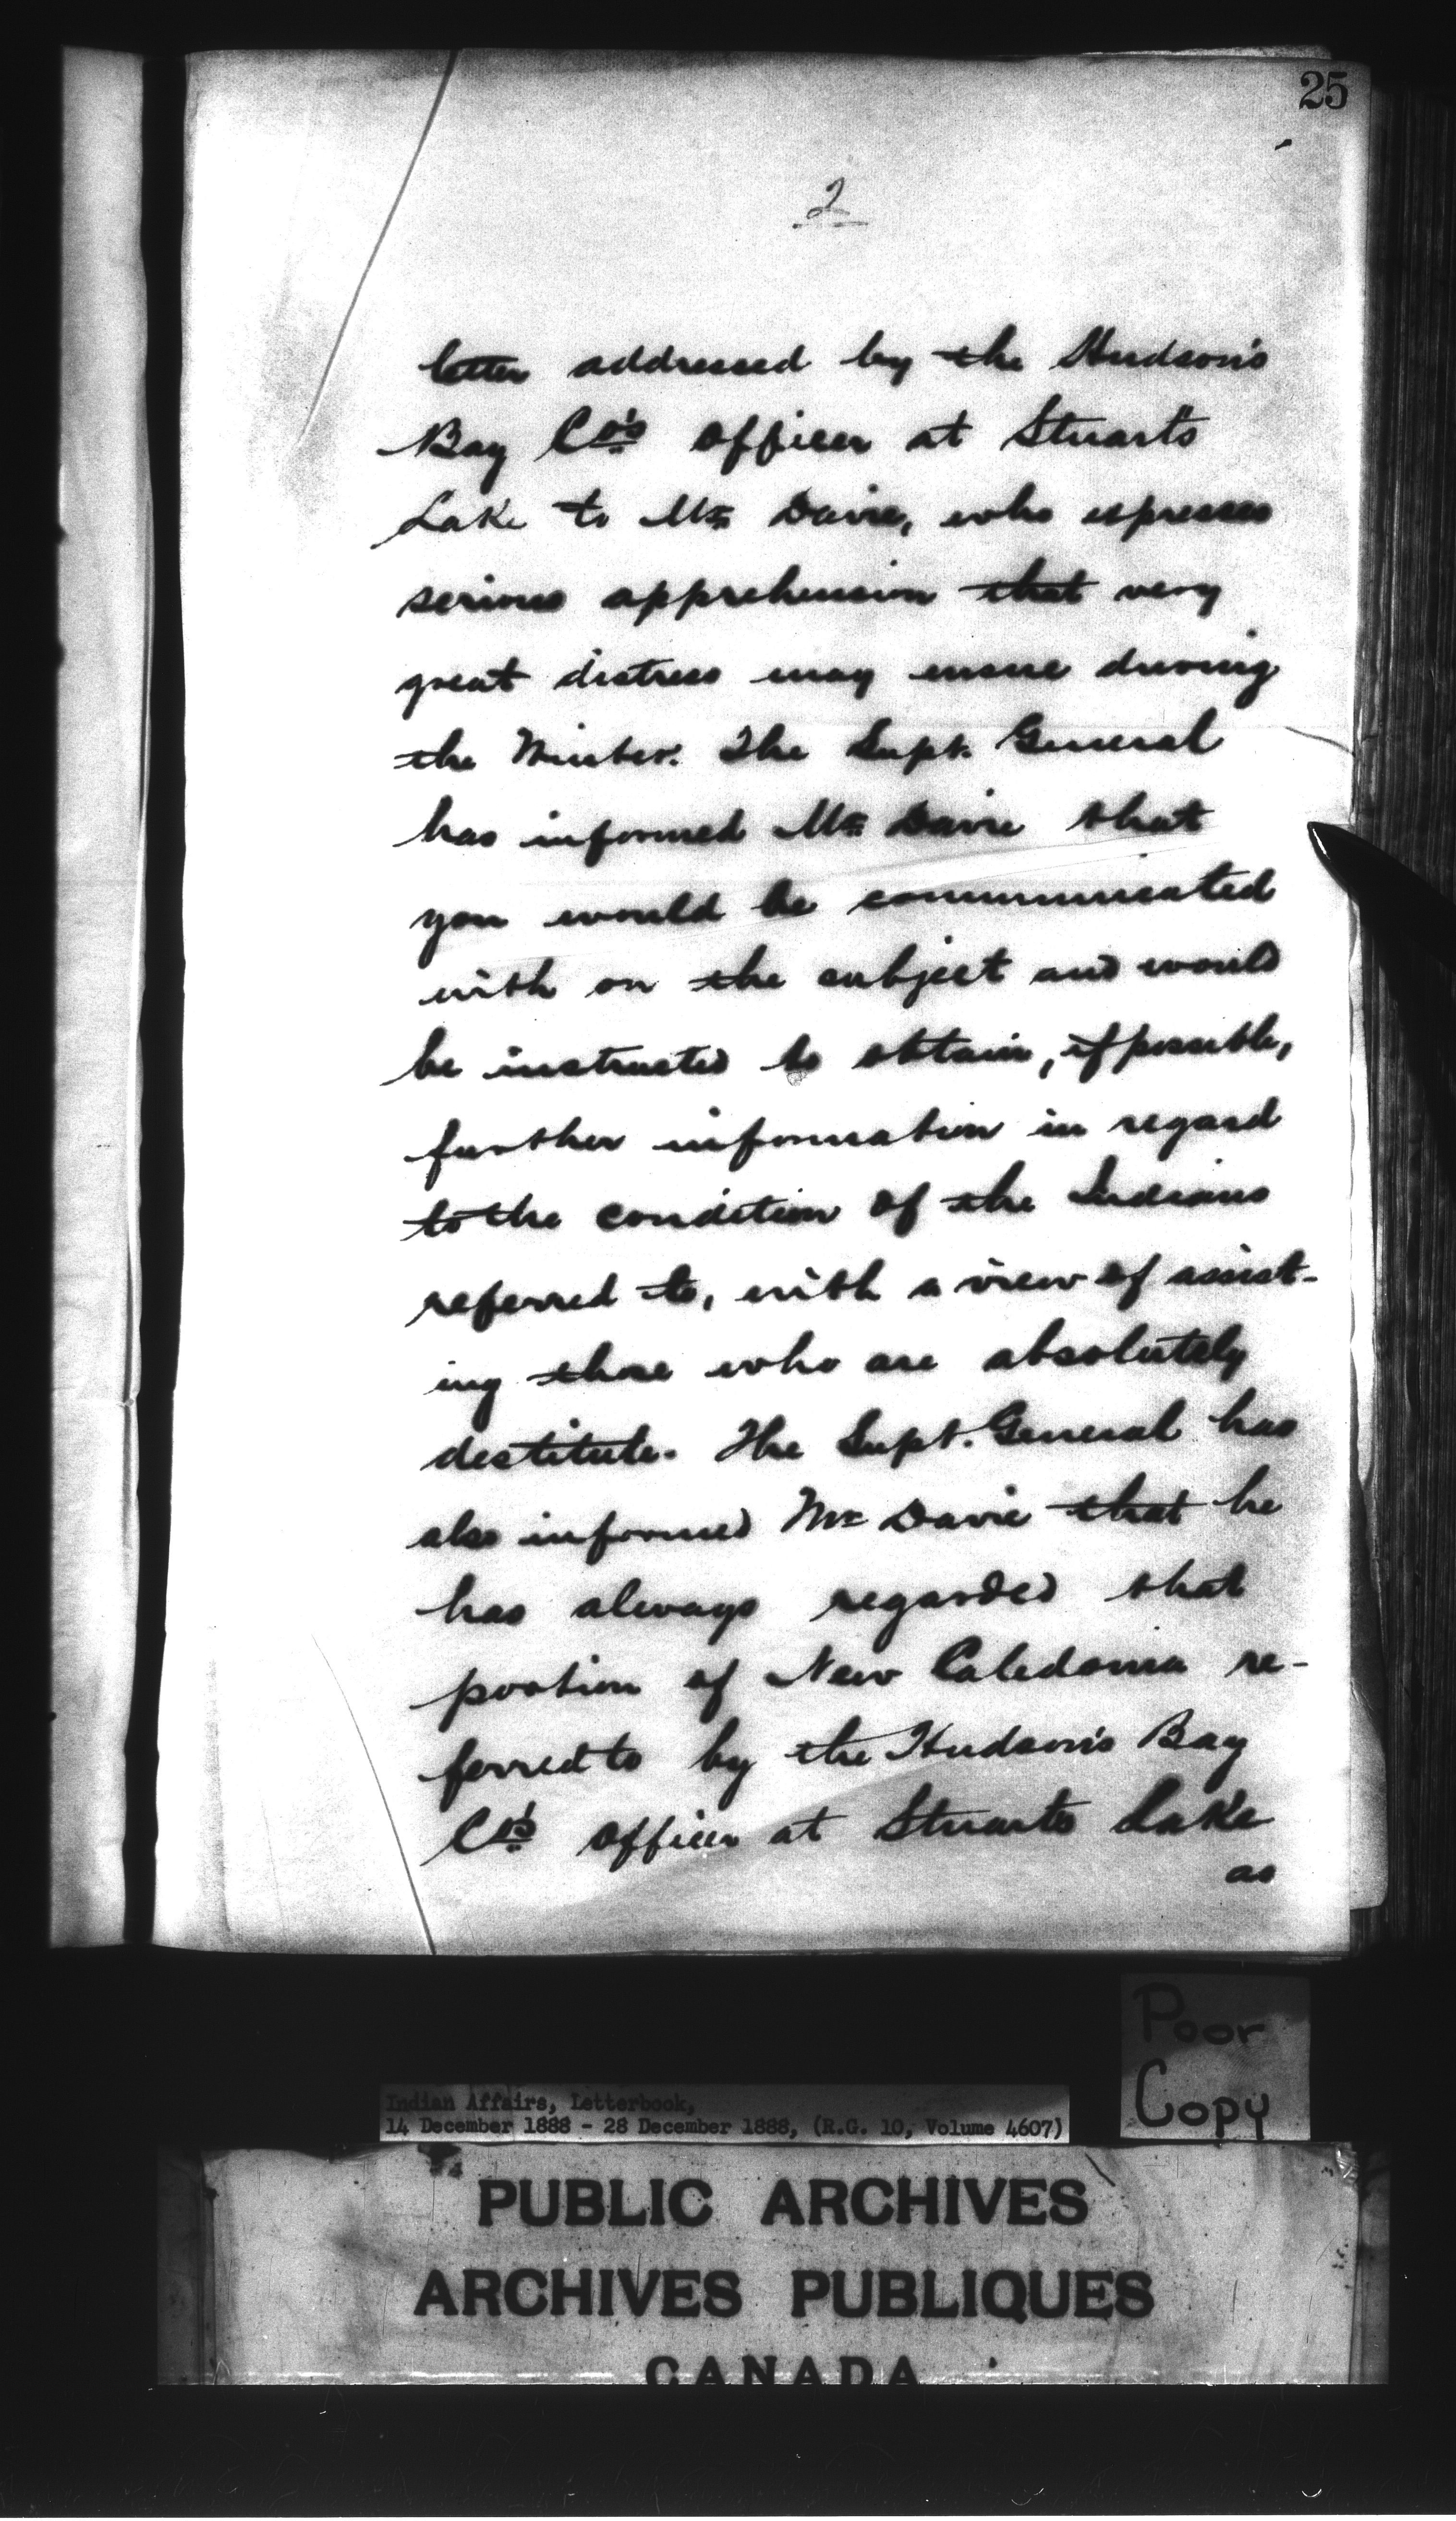 25
2
letter addressed by the Hudson's
Bay Co's officer at Stuart's
Lake to Mr Davie, who expresses
serious apprehension that very
great distress may ensue during
the Winter. The Supt. General
has informed Mr Davie that
you would be communicated
with on the subject and would
be instructed to obtain, if possible,
further information in regard
to the condition of the Indians
referred to, with a view of assist-
ing those who are absolutely
destitute. The Supt. General has
also informed Mr Davie that he
has always regarded that
portion of New Caledonia re-
ferred to by the Hudson's Bay
Co's officer at Stuarts Lake
as
Poor
Copy
Indian Affairs, Letterbook,
14 December 1888 - 28 December 1888, (R.G. 10, Volume 4607)
PUBLIC ARCHIVES
ARCHIVES PUBLIQUES
CANADA